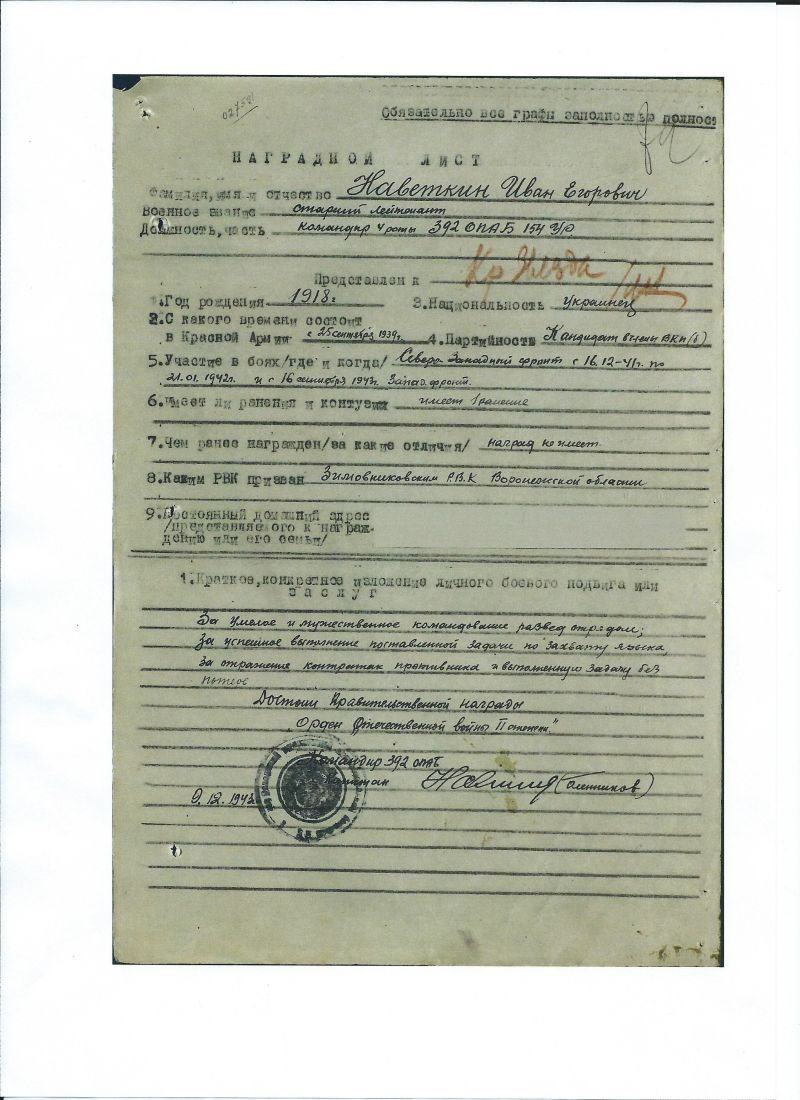 02758
Обязательно все графы заполностью полност
НАГРАДНОЙ ЛИСТ
Фамилия, имя и отчество Наветкин Иван Егорович
Военное звание старший лейтенант
Должность, часть командир роты 392 ОПАБ 154 УР
Представлен к Кр Звезда
1. Год рождения 1918г. 3. Национальность Украинец
2. С какого времени состоит
в Красной Армии с 25 сентября 1939г. 4. Партийность Кандидат в члены ВКП(б)
5. Участие в боях/где и когда/ Северо-Западный фронт с 16.12-41г. по
21.01.1942г. и с 16 сентября 1942г. Запад. фронт.
6. Имеет ли ранения и контузии имеет 1 ранение
7. Чем ранее награжден/за какие отличия/ наград не имеет
8. Каким РВК призван Зимовниковским Р.В.К Воронежской области
9. Постоянный домашний адрес
/представляемого к награж-
дению или его семьи/
1. Краткое, конкретное изложение личного боевого подвига или
заслуг
За умелое и мужественное командование развед отрядом;
За успешное выполнение поставленной задачи по захвату языка,
За отражение контратак противника и выполненную задачу без
Достоин Правительственной награды
"Орден Отечественной войны II степени."
Командир 392 ОПАБ
Капитан
9.12.1942